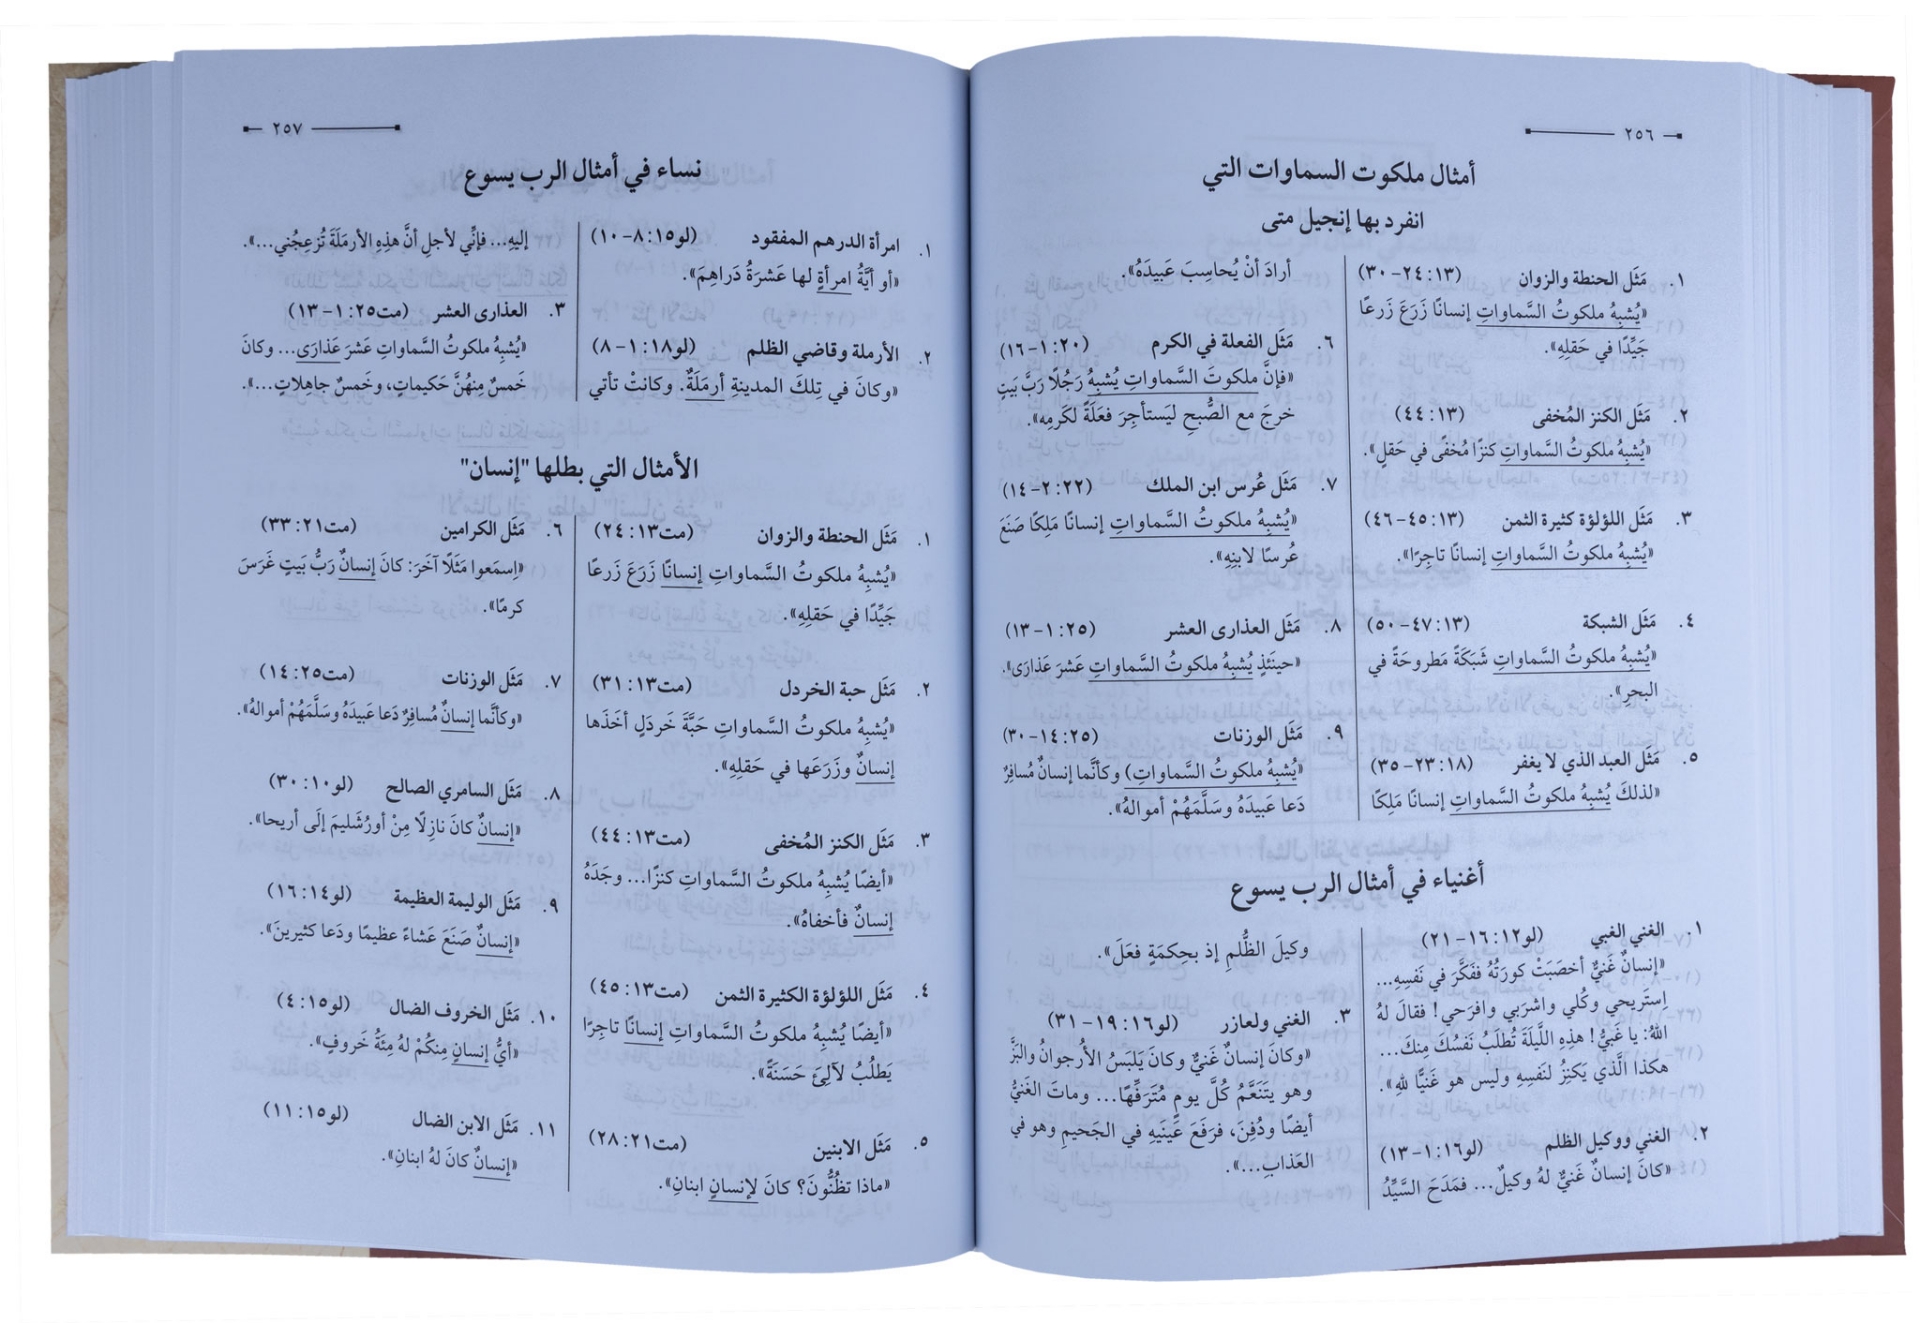 ٢٥٦
أمثال ملكوت السماوات التي
انفرد بها إنجيل متى
١. مَثَل الحنطة والزوان (١٣:٢٤-٣٠)
«يُشبِهُ ملكوتُ السَّماواتِ إنسانًا زَرَعَ زَرعًا
جَيِّدًا في حَقلِهِ».
٢. مَثَل الكنز المُخفى (١٣:٤٤)
«يُشبِهُ ملكوتُ السَّماواتِ كنزًا مُخفًى في حَقلٍ».
٣. مَثَل اللؤلؤة كثيرة الثمن (١٣:٤٥-٤٦)
«يُشبِهُ ملكوتُ السَّماواتِ إنسانًا تاجِرًا».
٤. مَثَل الشبكة (١٣:٤٧-٥٠)
«يُشبِهُ ملكوتُ السَّماواتِ شَبَكَةً مَطروحَةً في
البحرِ».
٥. مَثَل العبد الذي لا يغفر (١٨:٢٣-٣٥)
«لذلكَ يُشبِهُ ملكوتُ السَّماواتِ إنسانًا مَلِكًا
أرادَ أنْ يُحاسِبَ عَبيدَهُ».
٦. مَثَل الفعلة في الكرم (٢٠:١-١٦)
«فإنَّ ملكوتَ السَّماواتِ يُشبِهُ رَجُلًا رَبَّ بَيتٍ
خرجَ مع الصُّبحِ ليَستأجِرَ فعَلَةً لكَرمِه».
٧. مَثَل عُرس ابن الملك (٢٢:٢-١٤)
«يُشبِهُ ملكوتُ السَّماواتِ إنسانًا مَلِكًا صَنَعَ
عُرسًا لابنِهِ».
٨. مَثَل العذارى العشر (٢٥:١-١٣)
«حينَئذٍ يُشبِهُ ملكوتُ السَّماواتِ عَشرَ عَذارَى».
٩. مَثَل الوزنات (٢٥:١٤-٣٠)
«(يُشبِهُ ملكوتُ السَّماواتِ) وكأنَّما إنسانٌ مُسافِرٌ
دَعا عَبيدَهُ وسَلَّمَهُمْ أموالهُ».
أغنياء في أمثال الرب يسوع
١. الغني الغبي (لو١٢:١٦-٢١)
«إنسانٌ غَنيٌّ أخصَبَتْ كورَتُهُ ففَكَّرَ في نَفسِهِ...
اِستَريحي وكُلي واشرَبي وافرَحي! فقالَ لهُ
اللهُ: يا غَبيُّ! هذِهِ اللَّيلَةَ تُطلَبُ نَفسُكَ مِنكَ...
هكذا الَّذي يَكنِزُ لنَفسِهِ وليس هو غَنيًّا للهِ».
٢. الغني ووكيل الظلم (لو١٦:١-١٣)
«كانَ إنسانٌ غَنيٌّ لهُ وكيلٌ... فمَدَحَ السَّيِّدُ
وكيلَ الظُّلمِ إذ بحِكمَةٍ فعَلَ».
٣. الغني ولعازر (لو١٦:١٩-٣١)
«وكانَ إنسانٌ غَنيٌّ وكانَ يَلبَسُ الأُرجوانَ والبَزَّ
وهو يتَنَعَّمُ كُلَّ يومٍ مُتَرَفِّهًا... وماتَ الغَنيُّ
أيضًا ودُفِنَ، فرَفَعَ عَينَيهِ في الجَحيمِ وهو في
العَذابِ...».
٢٥٧
نساء في أمثال الرب يسوع
١. امرأة الدرهم المفقود (لو١٥:٨-١٠)
«أو أيَّةُ امرأةٍ لها عَشرَةُ دَراهِمَ».
٢. الأرملة وقاضي الظلم (لو١٨:١-٨)
«وكانَ في تِلكَ المدينةِ أرمَلَةٌ. وكانتْ تأتي
إليهِ... فإنِّي لأجلِ أنَّ هذِهِ الأرمَلَةَ تُزعِجُني...».
٣. العذارى العشر (مت٢٥:١-١٣)
«يُشبِهُ ملكوتُ السَّماواتِ عَشرَ عَذارَى... وكانَ
خَمسٌ مِنهُنَّ حَكيماتٍ، وخَمسٌ جاهِلاتٍ...».
الأمثال التي بطلها "إنسان"
١. مَثَل الحنطة والزوان (مت١٣:٢٤)
«يُشبِهُ ملكوتُ السَّماواتِ إنسانًا زَرَعَ زَرعًا
جَيِّدًا في حَقلِهِ».
٢. مَثَل حبة الخردل (مت١٣:٣١)
«يُشبِهُ ملكوتُ السَّماواتِ حَبَّةَ خَردَلٍ أخَذَها
إنسانٌ وزَرَعَها في حَقلِهِ».
٣. مَثَل الكنز المُخفى (مت١٣:٤٤)
«أيضًا يُشبِهُ ملكوتُ السَّماواتِ كنزًا... وجَدَهُ
إنسانٌ فأخفاهُ».
٤. مَثَل اللؤلؤة الكثيرة الثمن (مت١٣:٤٥)
«أيضًا يُشبِهُ ملكوتُ السَّماواتِ إنسانًا تاجِرًا
يَطلُبُ لآلِئَ حَسَنَةً».
٥. مَثَل الابنين (مت٢١:٢٨)
«ماذا تظُنُّونَ؟ كانَ لإنسانٍ ابنانِ».
٦. مَثَل الكرامين (مت٢١:٣٣)
«اِسمَعوا مَثَلًا آخَرَ: كانَ إنسانٌ رَبُّ بَيتٍ غَرَسَ
كرمًا».
٧. مَثَل الوزنات (مت٢٥:١٤)
«وكأنَّما إنسانٌ مُسافِرٌ دَعا عَبيدَهُ وسَلَّمَهُمْ أموالهُ».
٨. مَثَل السامري الصالح (لو١٠:٣٠)
«إنسانٌ كانَ نازِلًا مِنْ أورُشَليمَ إلَى أريحا».
٩. مَثَل الوليمة العظيمة (لو١٤:١٦)
«إنسانٌ صَنَعَ عَشاءً عظيمًا ودَعا كثيرينَ».
١٠. مَثَل الخروف الضال (لو١٥:٤)
«أيُّ إنسانٍ مِنكُمْ لهُ مِئَةُ خَروفٍ».
١١. مَثَل الابن الضال (لو١٥:١١)
«إنسانٌ كانَ لهُ ابنانِ».